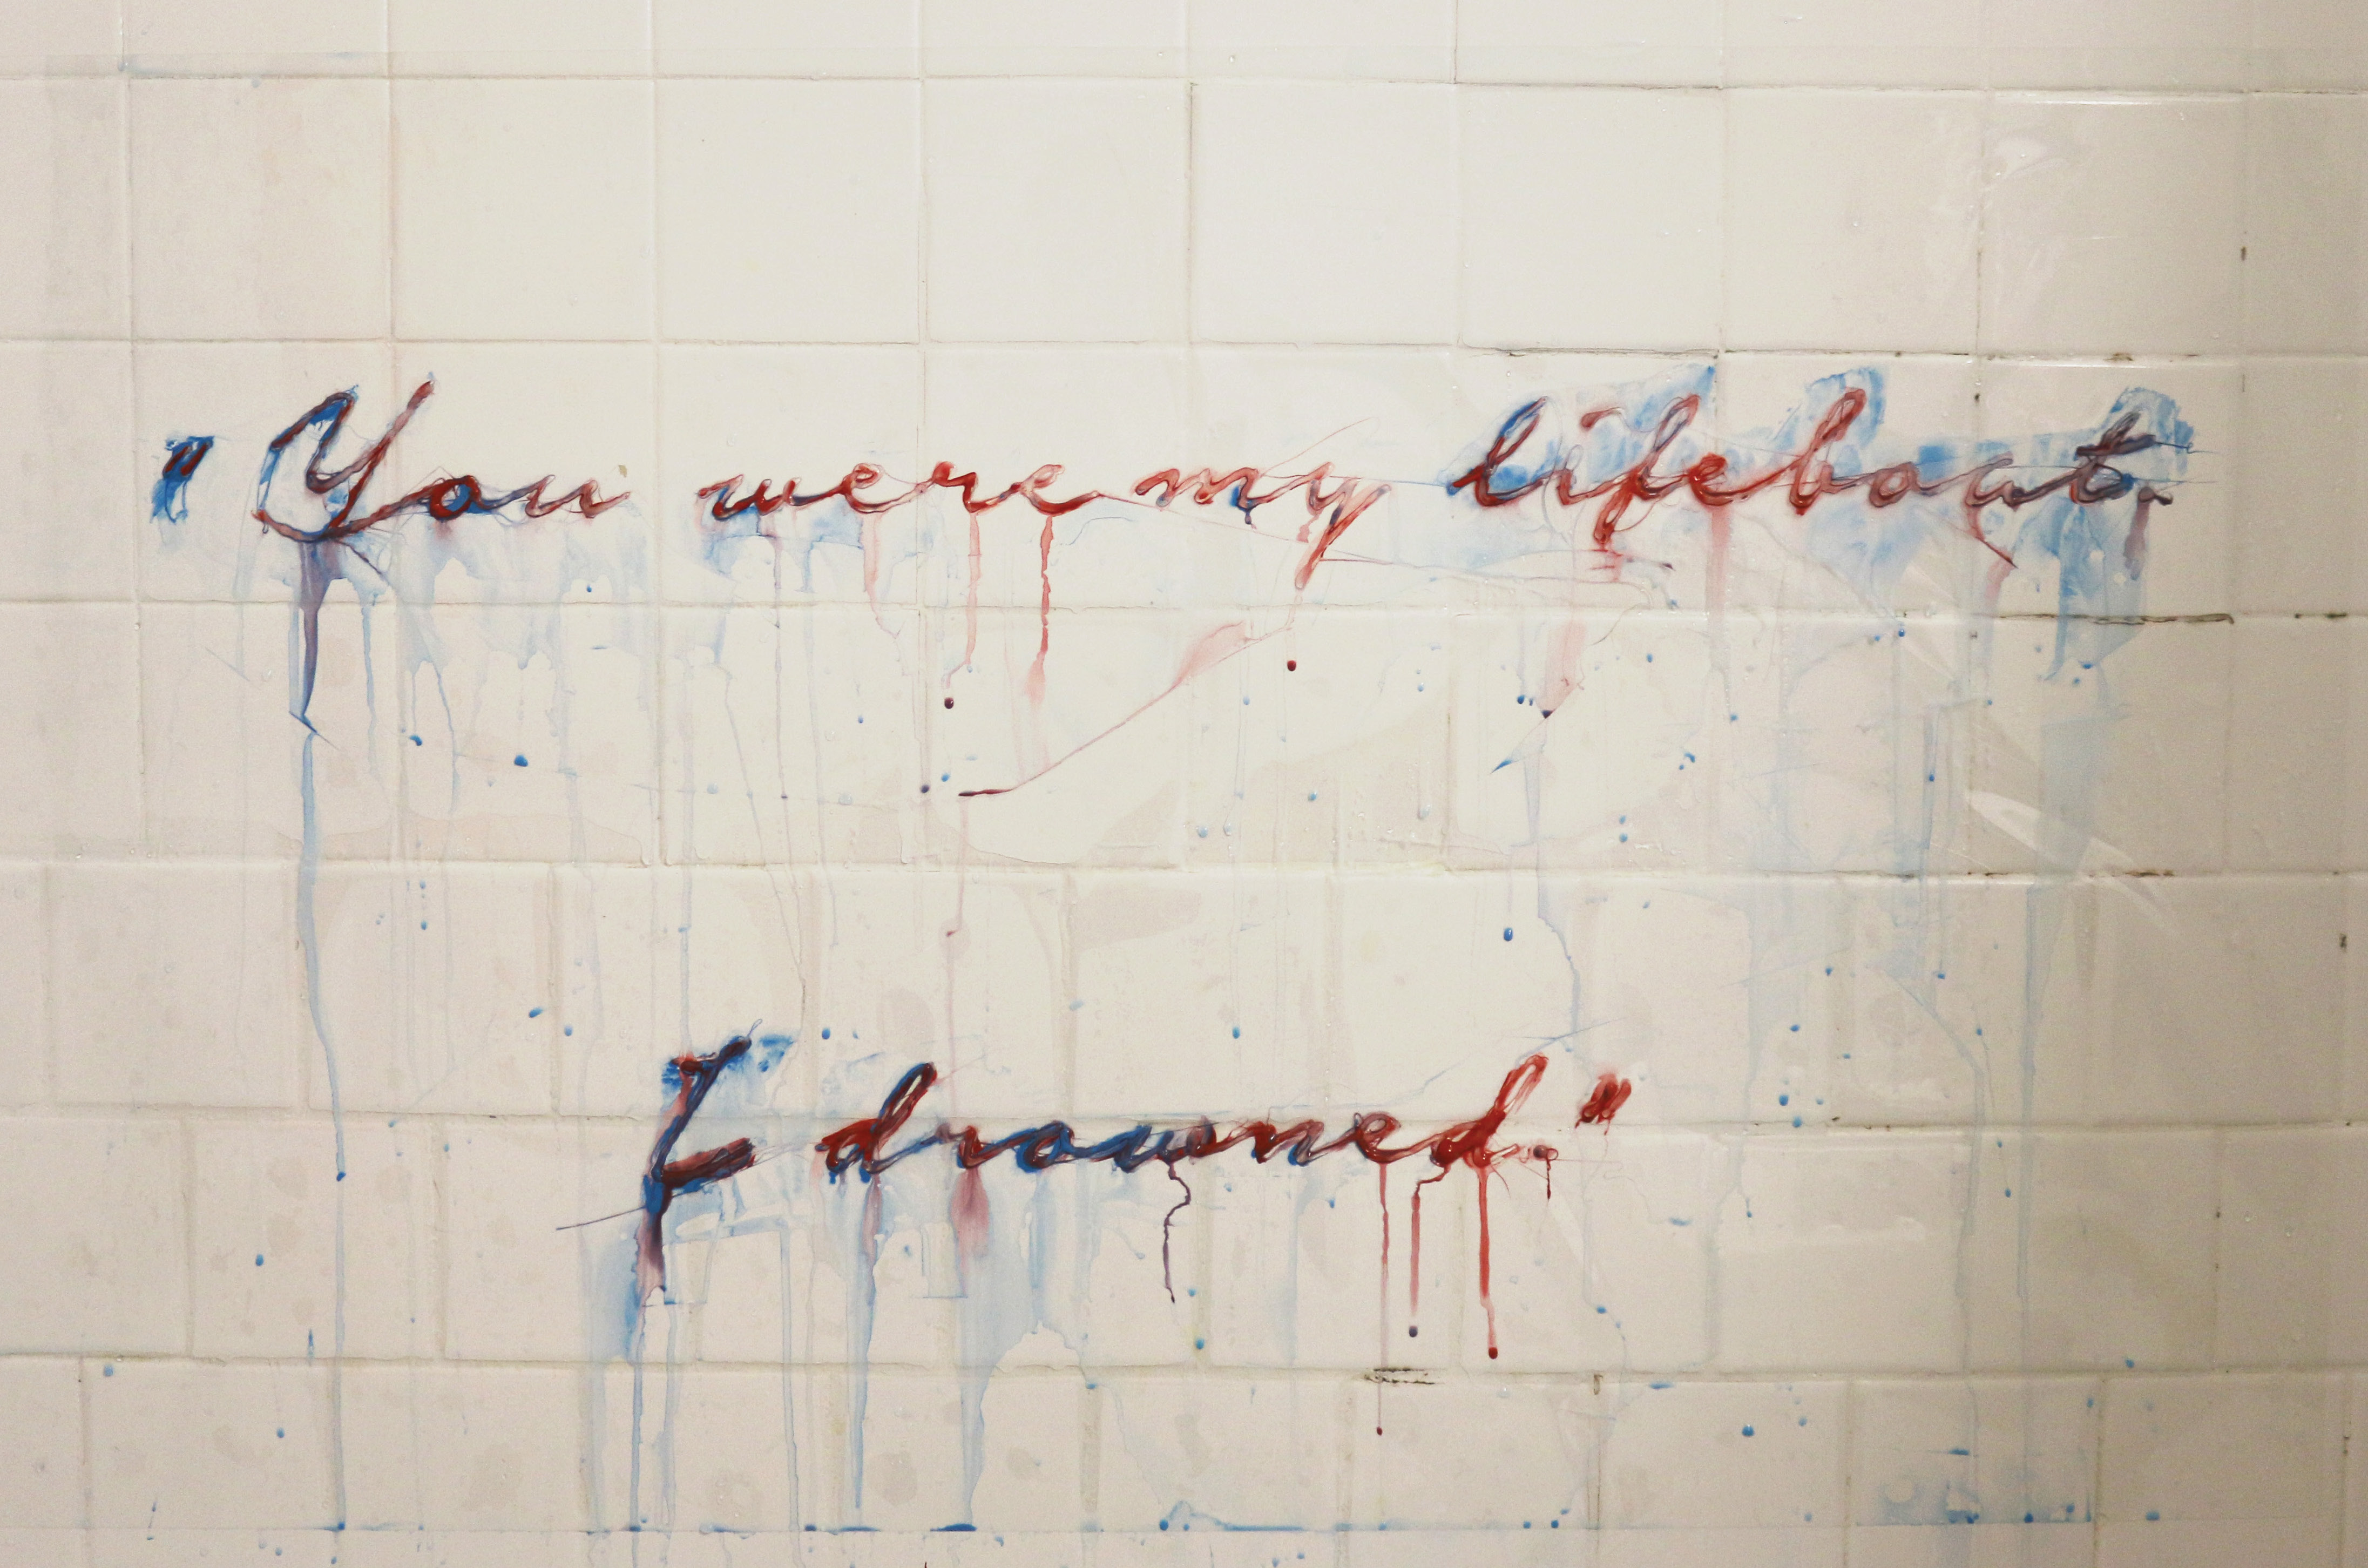 "You were my lifeboat.
I drowned."